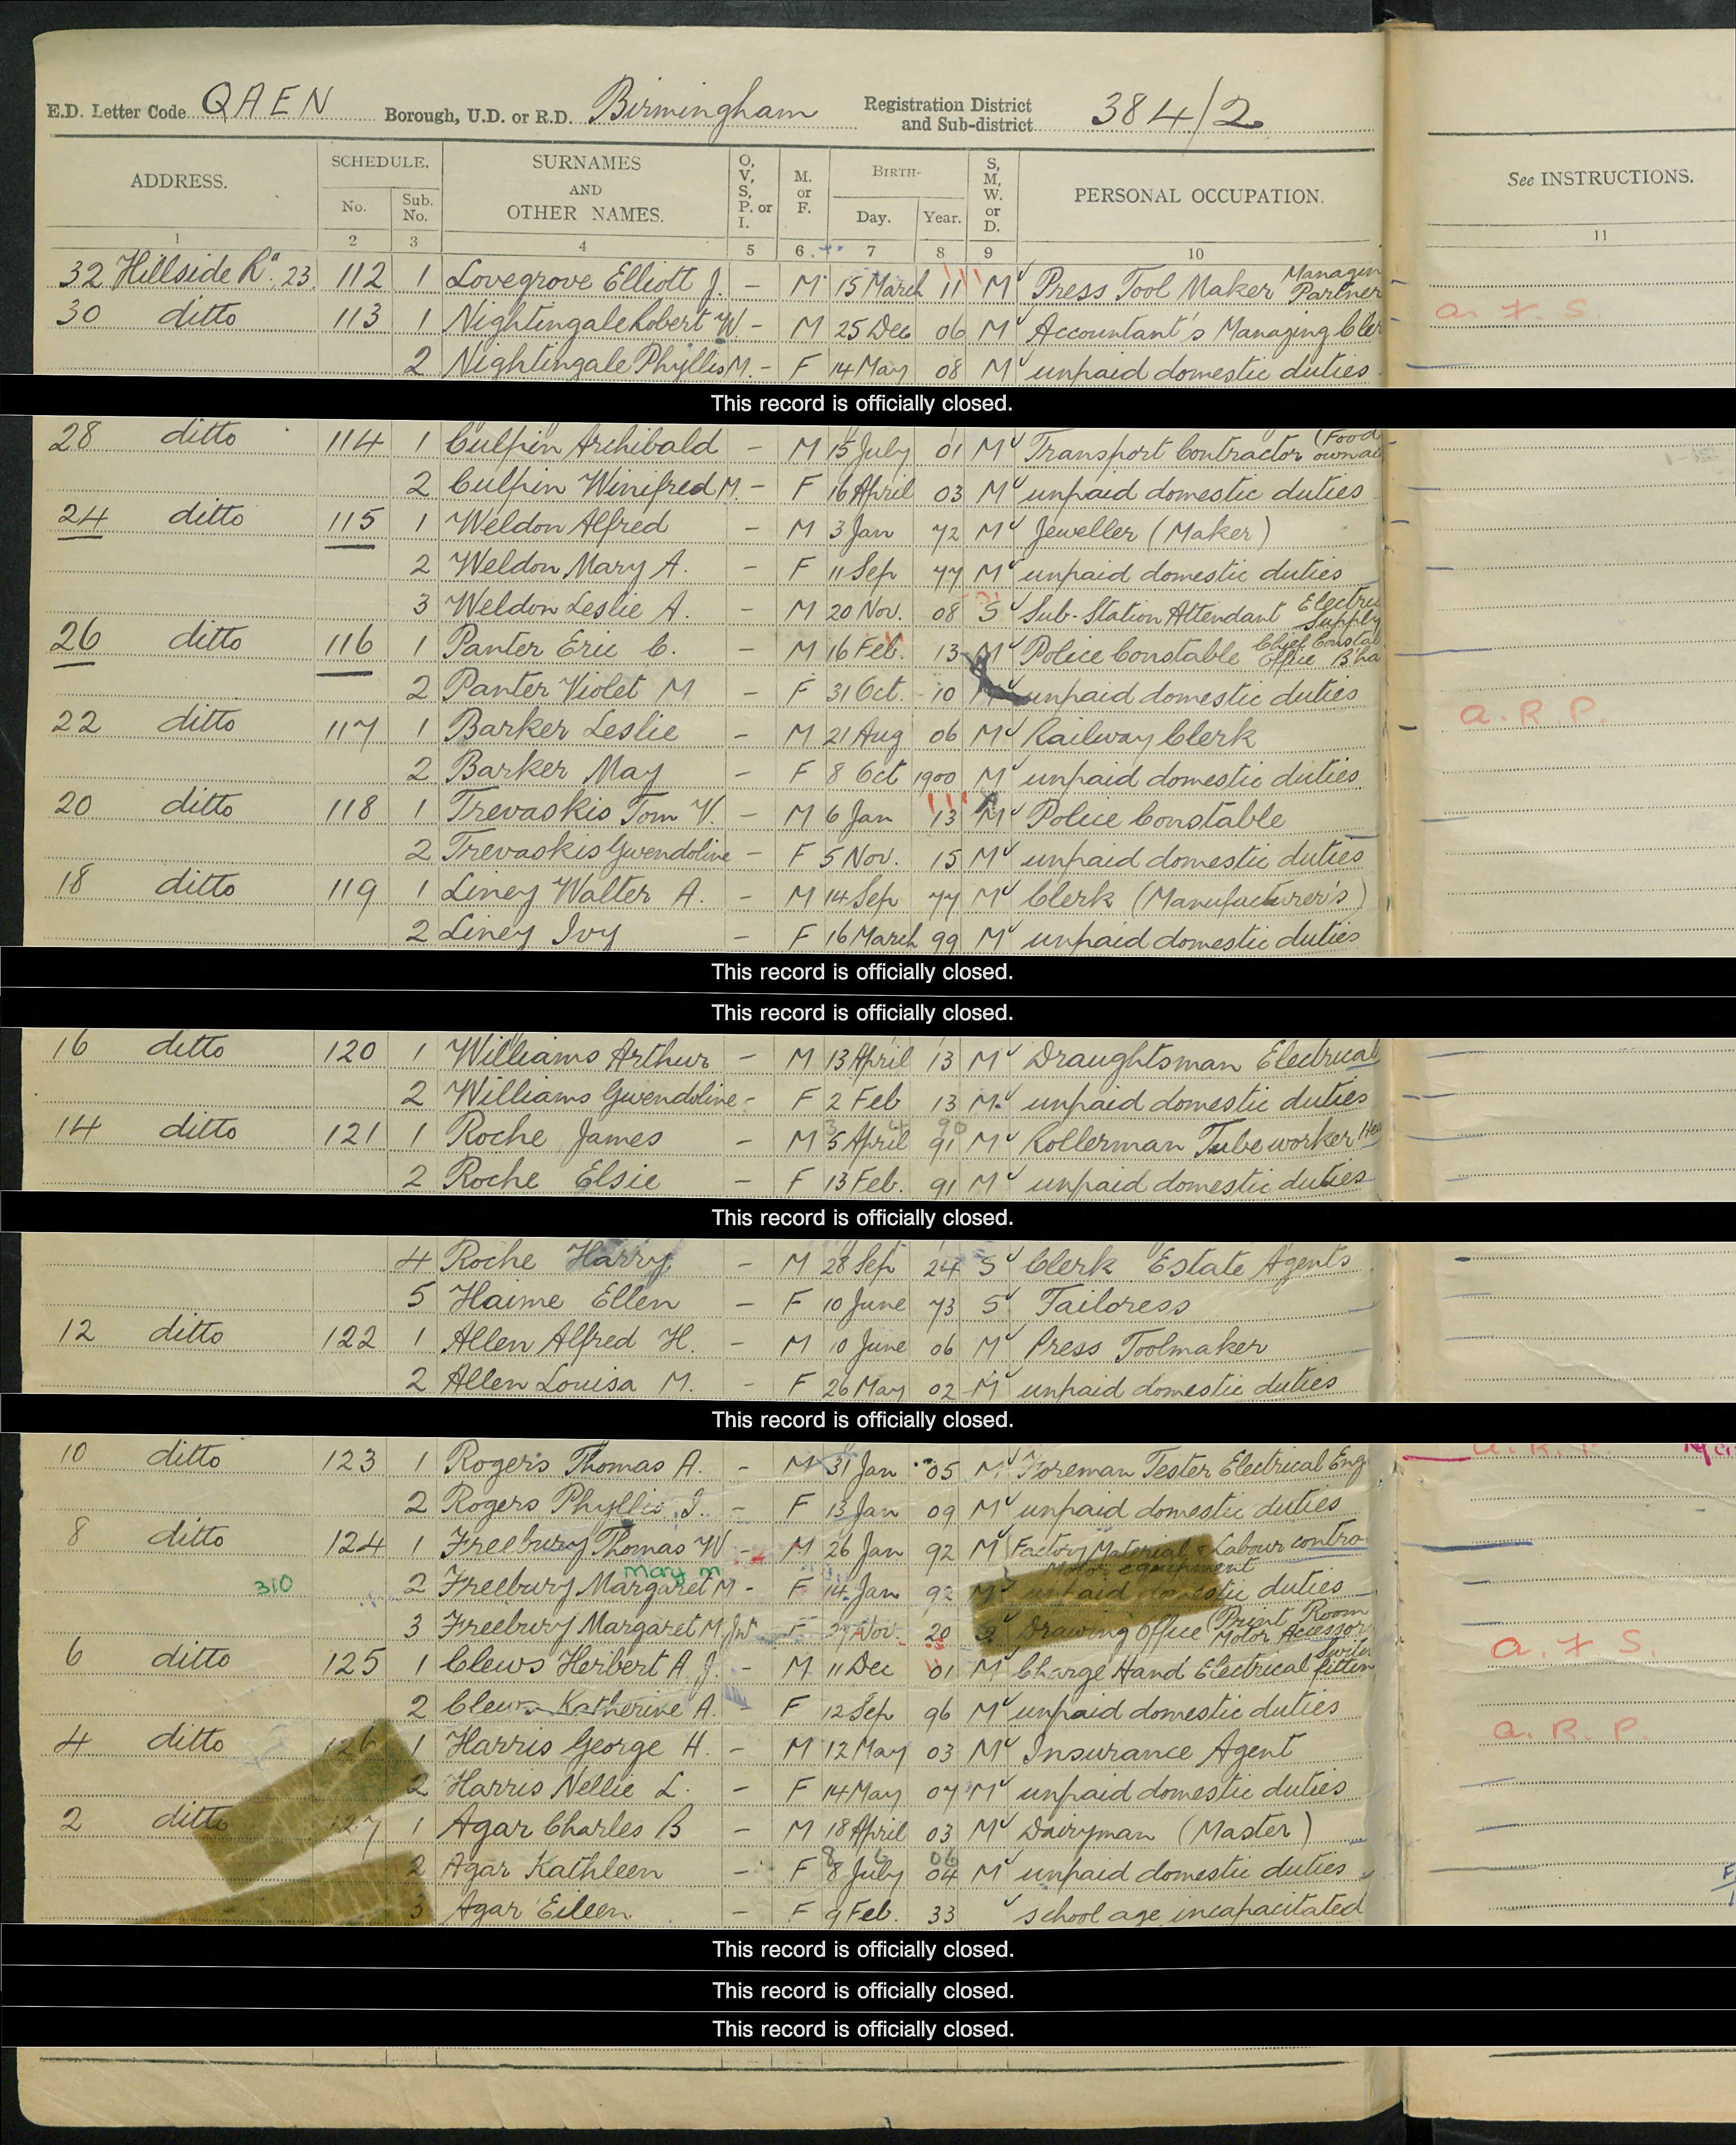 E.D. Letter Code QAEN Borough, U.D. or R.D. Birmingham Registration District and Sub-district 384/2
ADDRESS. SCHEDULE. No. Sub. No. SURNAMES AND OTHER NAMES. O, V, S, P. or I. M. or F. BIRTH- Day. Year. S, M, W. or D. PERSONAL OCCUPATION. See INSTRUCTIONS.
1 2 3 4 5 6 7 8 9 10 11
32 Hillside Rd. 23. 112 1 Lovegrove Elliott J. - M 15 March 11 M Press Tool Maker Managin Partner
30 ditto 113 1 Nightingale Robert W - M 25 Dec 06 M Accountant's Managing Cler a. F. S.
2 Nightingale Phyllis M. - F 14 May 08 M unpaid domestic duties
This record is officially closed.
28 ditto 114 1 Culpin Archibald - M 15 July 01 M Transport Contractor (Food own ac
2 Culpin Winifred M - F 16 April 03 M unpaid domestic duties
24 ditto 115 1 Weldon Alfred - M 3 Jan 72 M Jeweller (Maker)
2 Weldon Mary A. - F 11 Sep 77 M unpaid domestic duties
3 Weldon Leslie A. - M 20 Nov. 08 S Sub-Station Attendant Electric Supply
26 ditto 116 1 Panter Eric C. - M 16 Feb. 13 M Police Constable Chief Constab Office B'ha
2 Panter Violet M - F 31 Oct. 10 unpaid domestic duties
22 ditto 117 1 Barker Leslie - M 21 Aug 06 M Railway Clerk a. R. P.
2 Barker May - F 8 Oct 1900 M unpaid domestic duties
20 ditto 118 1 Trevaskis Tom V. - M 6 Jan 13 M Police Constable
2 Trevaskis Gwendoline - F 5 Nov. 15 M unpaid domestic duties
18 ditto 119 1 Liney Walter A. - M 14 Sep 77 M Clerk (Manufacturer's)
2 Liney Ivy - F 16 March 99 M unpaid domestic duties
This record is officially closed.
This record is officially closed.
16 ditto 120 1 Williams Arthur - M 13 April 13 M Draughtsman Electrical
2 Williams Gwendoline - F 2 Feb 13 M unpaid domestic duties
14 ditto 121 1 Roche James - M 5 April 91 90 M Rollerman Tube worker Hea
2 Roche Elsie - F 13 Feb. 91 M unpaid domestic duties
This record is officially closed.
4 Roche Harry - M 28 Sep 24 S Clerk Estate Agents
5 Haime Ellen - F 10 June 73 S Tailoress
12 ditto 122 1 Allen Alfred H. - M 10 June 06 M Press Toolmaker
2 Allen Louisa M. - F 26 May 02 M unpaid domestic duties
This record is officially closed.
10 ditto 123 1 Rogers Thomas A. - M 31 Jan 05 M Foreman Tester Electrical Eng
2 Rogers Phyllis I. - F 13 Jan 09 M unpaid domestic duties
8 ditto 124 1 Freebury Thomas W - M 26 Jan 92 M Factory Material & Labour contro
May M Motor equipment
310 2 Freebury Margaret M - F 14 Jan 92 M unpaid domestic duties
3 Freebury Margaret M. Jnr F 27 Nov. 20 S Drawing Office (Print Room Motor Accessor
6 ditto 125 1 Clews Herbert A J. - M 11 Dec 01 M Charge Hand Electrical fittin a. F. S.
2 Clews Katherine A. - F 12 Sep 96 M unpaid domestic duties
4 ditto 126 1 Harris George H. - M 12 May 03 M Insurance Agent a. R. P.
2 Harris Nellie L. - F 14 May 07 M unpaid domestic duties
2 ditto 127 1 Agar Charles B - M 18 April 03 M Dairyman (Master)
2 Agar Kathleen - F 8 July 04 06 M unpaid domestic duties
3 Agar Eileen - F 9 Feb. 33 school age incapacitated
This record is officially closed.
This record is officially closed.
This record is officially closed.